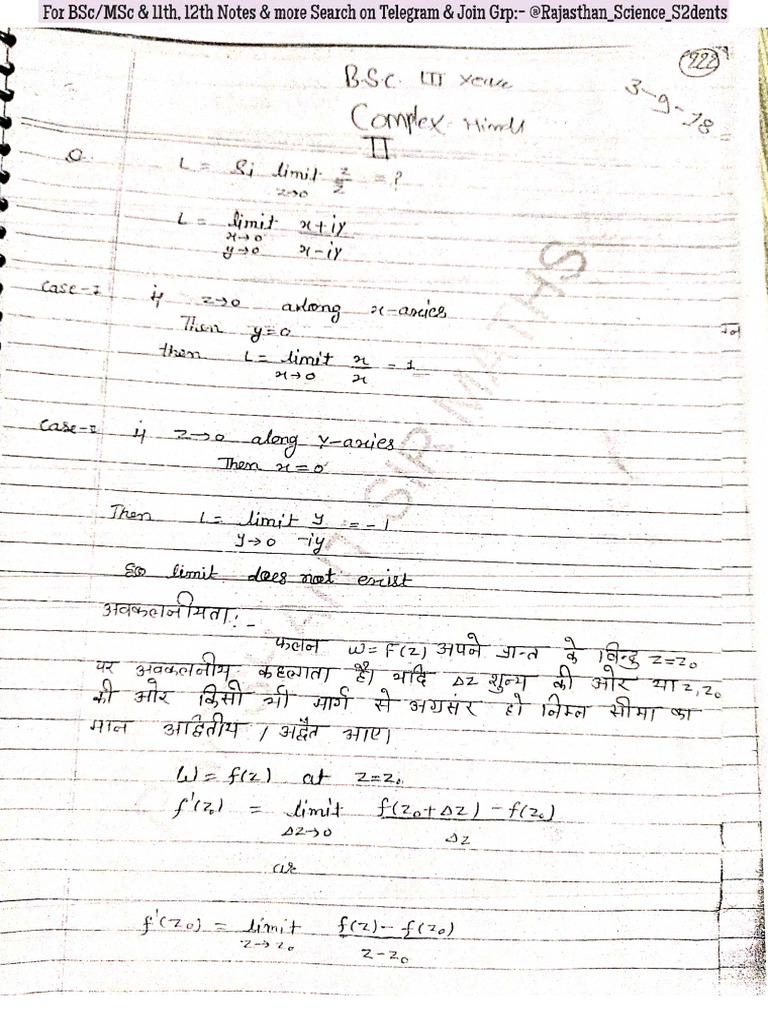 For BSc/MSc & 11th, 12th Notes & more Search on Telegram & Join Grp:- @Rajasthan_Science_S2dents
222
B.Sc. III Year
3-9-18
Complex Hindi
II
Q. L = limit z→0 z/z̄ = ?
L = limit x→0 y→0 x+iy / x-iy
Case-I if z→0 arlong x-axies
Then y=0
then L = limit x→0 x/x = 1
Case-I if z→0 along y-axies
Then x=0
Then L = limit y→0 y/-iy = -1
So limit does not exist
अवकलनीयता:-
फलन w=f(z) अपने प्रान्त के बिन्दु z=z₀
पर अवकलनीय कहलाता है। यदि Δz शून्य की ओर या z, z₀
की ओर किसी भी मार्ग से अग्रसर हो निम्न सीमा का
मान अद्वितीय / अद्वैत आए।
W = f(z) at z=z₀
f'(z₀) = limit Δz→0 f(z₀+Δz) - f(z₀) / Δz
or
f'(z₀) = limit z→z₀ f(z) - f(z₀) / z-z₀
SIR MATHS